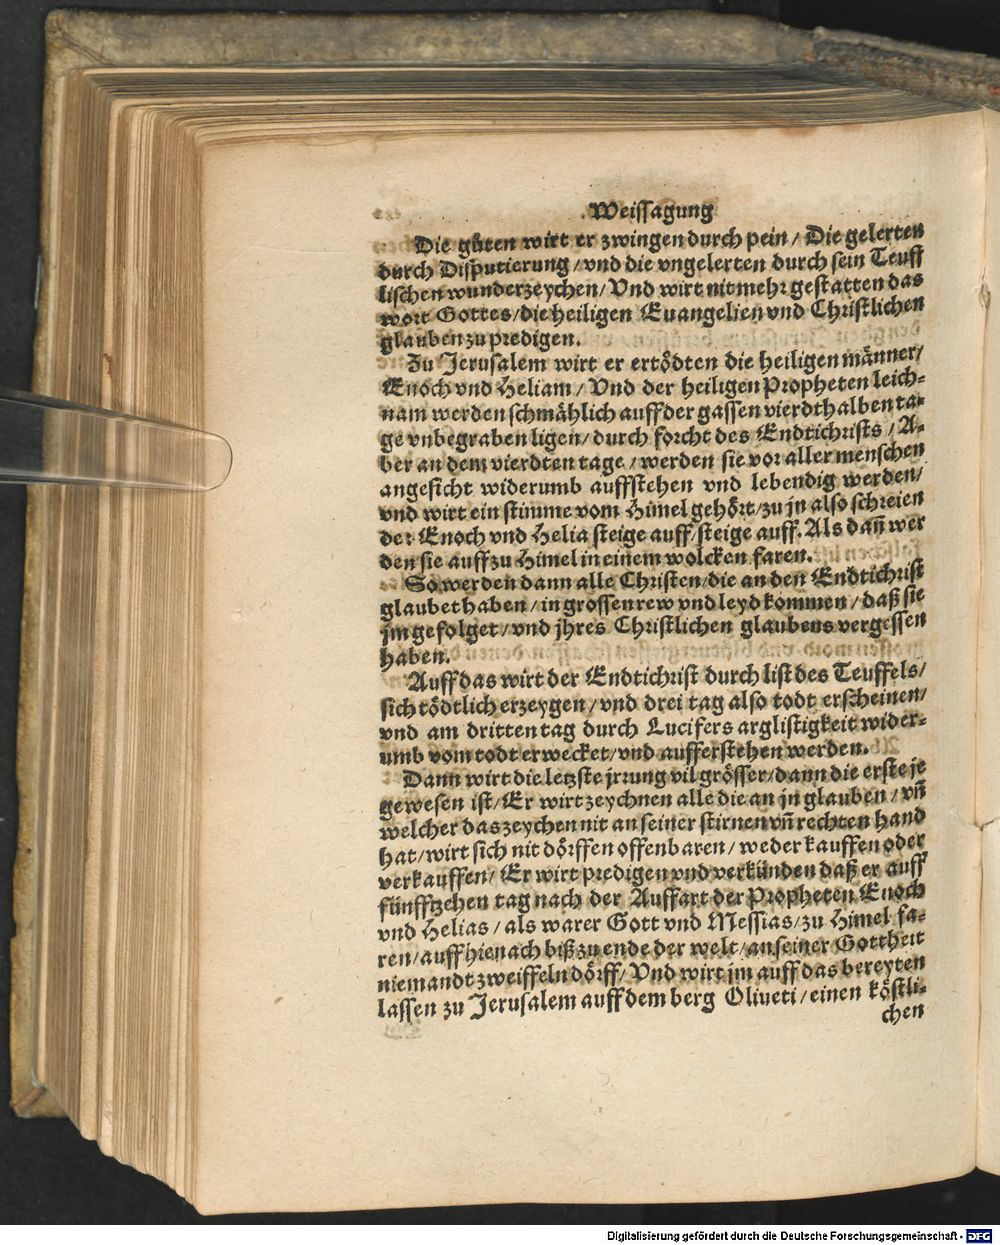 Weissagung
Die gůten wirt er zwingen durch pein / Die gelerten
durch Disputierung / vnd die vngelerten durch sein Teuff
lischen wunderzeychen / Vnd wirt nit mehr gestatten das
wort Gottes / die heiligen Euangelien vnd Christlichen
glauben zu predigen.
Zu Jerusalem wirt er ertödten die heiligen männer /
Enoch vnd Heliam / Vnd der heiligen Propheten leich⸗
nam werden schmählich auff der gassen vierdthalben ta⸗
ge vnbegraben ligen / durch forcht des Endtichrists / A⸗
ber an dem vierdten tage / werden sie vor aller menschen
angesicht widerumb auffstehen vnd lebendig werden /
vnd wirt ein stimme vom Himel gehört / zu jn also schreien
der Enoch vnd Helia steige auff / steige auff. Als dañ wer
den sie auff zu Himel in einem wolcken faren.
So werden dann alle Christen / die an den Endtichrist
glaubet haben / in grossen rew vnd leyd kommen / daß sie
jm gefolget / vnd jhres Christlichen glaubens vergessen
haben.
Auff das wirt der Endtichrist durch list des Teuffels /
sich tödtlich erzeygen / vnd drei tag also todt erscheinen /
vnd am dritten tag durch Lucifers arglistigkeit wider⸗
umb vom todt erwecket / vnd aufferstehen werden.
Dann wirt die letzste jrrung vil grösser / dann die erste je
gewesen ist / Er wirt zeychnen alle die an jn glauben / vñ
welcher das zeychen nit an seiner stirnen vñ rechten hand
hat / wirt sich nit dörffen offenbaren / weder kauffen oder
verkauffen / Er wirt predigen vnd verkünden daß er auff
fünfftzehen tag nach der Auffart der Propheten Enoch
vnd Helias / als warer Gott vnd Messias / zu Himel fa⸗
ren / auff hienach biß zu ende der welt / an seiner Gottheit
niemandt zweiffeln dörff / Vnd wirt jm auff das bereyten
lassen zu Jerusalem auff dem berg Oliueti / einen köstli⸗
chen
Digitalisierung gefördert durch die Deutsche Forschungsgemeinschaft - DFG